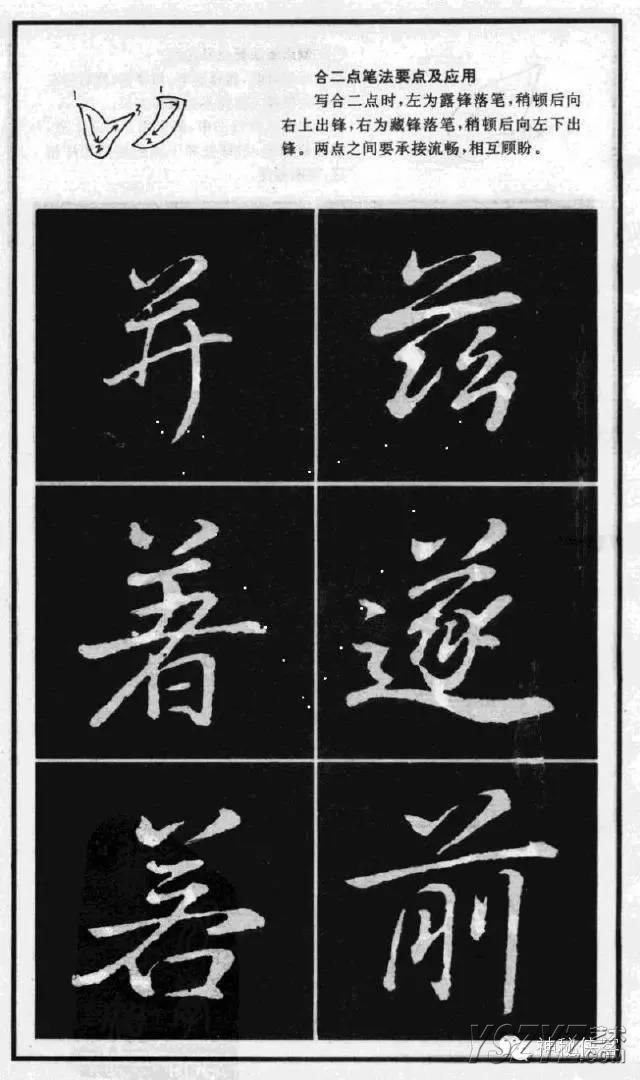 合二点笔法要点及应用
写合二点时，左为露锋落笔，稍顿后向
右上出锋，右为藏锋落笔，稍顿后向左下出
锋。两点之间要承接流畅，相互顾盼。
1 2 3 1 2
兹
遂
前
并
着
若